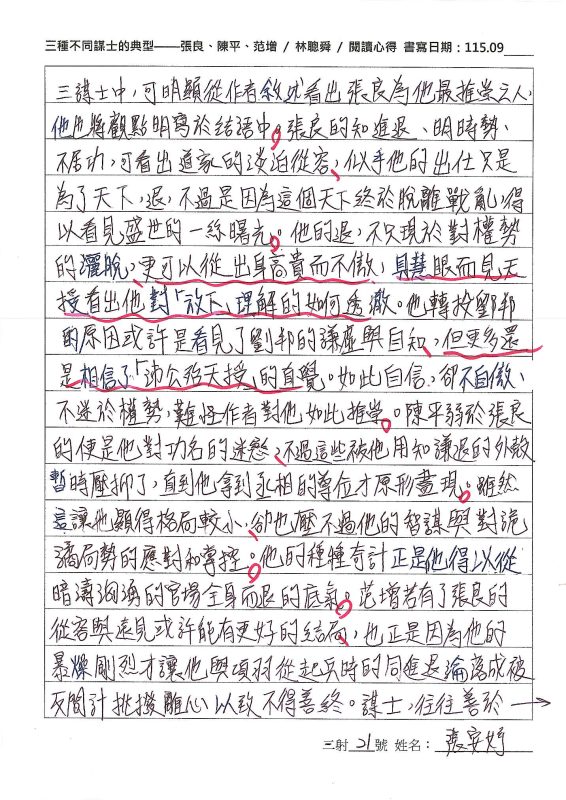 三種不同謀士的典型——張良、陳平、范增 / 林聰舜 / 閱讀心得 書寫日期：115.09
三謀士中，可明顯從作者敘述看出張良為他最推崇之人，
他也將觀點明寫於結語中。張良的知進退、明時勢、
不居功，可看出道家的淡泊從容，似乎他的出仕只是
為了天下，退，不過是因為這個天下終於脫離戰亂，得
以看見盛世的一絲曙光。他的退，不只現於對權勢
的灑脫，更可以從出身高貴而不傲，具慧眼而見天
授看出他對「放下」理解的如何透澈。他轉投劉邦
的原因或許是看見了劉邦的謙虛與自知，但更多還
是相信了「沛公殆天授」的直覺。如此自信，卻不自傲、
不迷於權勢，難怪作者對他如此推崇。陳平弱於張良
的便是他對功名的迷戀，不過這些被他用知謙退的外殼
暫時壓抑了，直到他拿到丞相的尊位才原形畫現。雖然
這讓他顯得格局較小，卻也壓不過他的智謀與對詭
譎局勢的應對和掌控。他的種種奇計正是他得以從
暗濤洶湧的官場全身而退的底氣。范增若有了張良的
從容與遠見或許能有更好的結局，也正是因為他的
暴燥剛烈才讓他與項羽從起兵時的同進退淪落成被
反間計挑撥離心以致不得善終。謀士，往往善於→
三射 21 號 姓名：張安妤